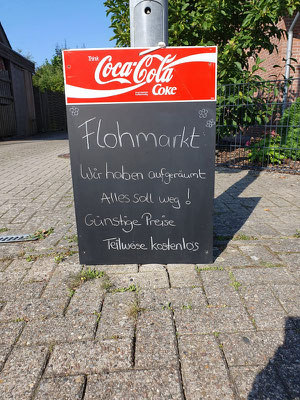 Trink
Coca-Cola
Coke
Flohmarkt
Wir haben aufgeräumt
Alles soll weg!
Günstige Preise
Teilweise kostenlos